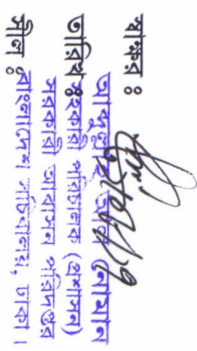 স্বাক্ষর ঃ
আব্দুল্লাহ আল নোমান
তারিখ ঃ
সহকারী পরিচালক (প্রশাসন)
সরকারি আবাসন পরিদপ্তর
সীল ঃ
বাংলাদেশ সচিবালয়, ঢাকা ।